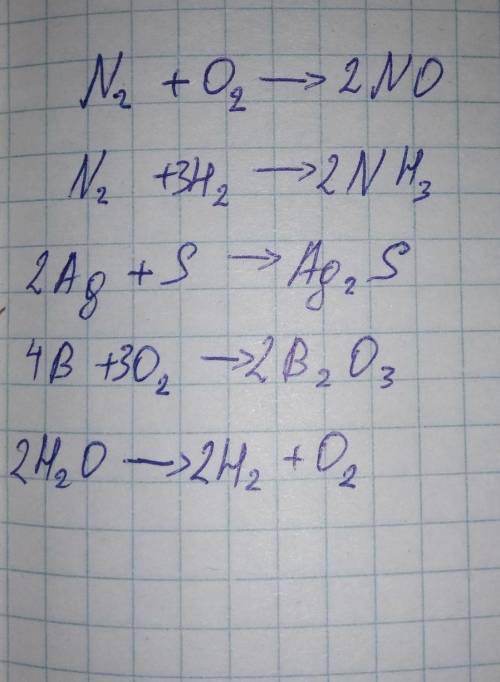 N₂ + O₂ → 2NO
N₂ + 3H₂ → 2NH₃
2Ag + S → Ag₂S
4B + 3O₂ → 2B₂O₃
2H₂O → 2H₂ + O₂